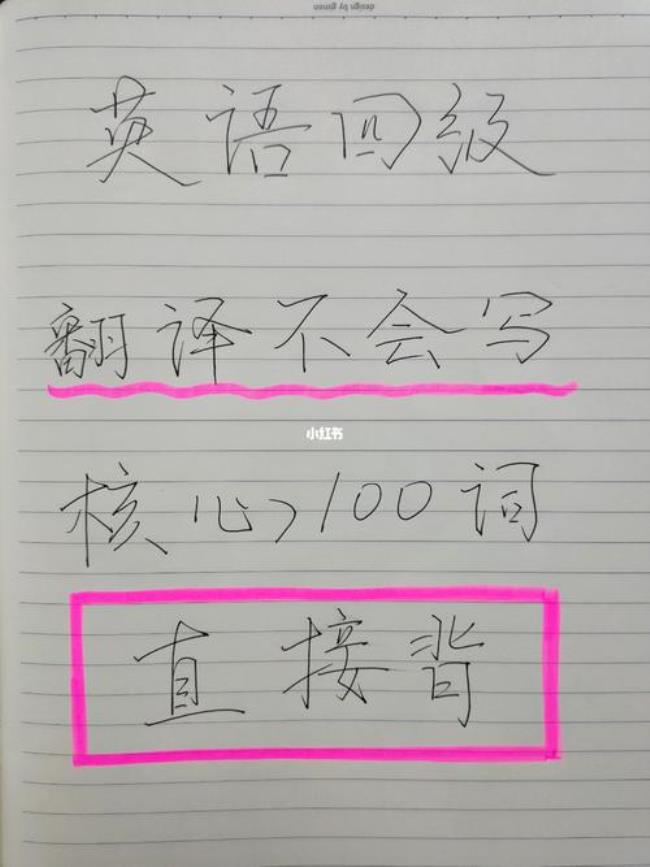 英语四级
翻译不会写
小红书
核心100词
直接背